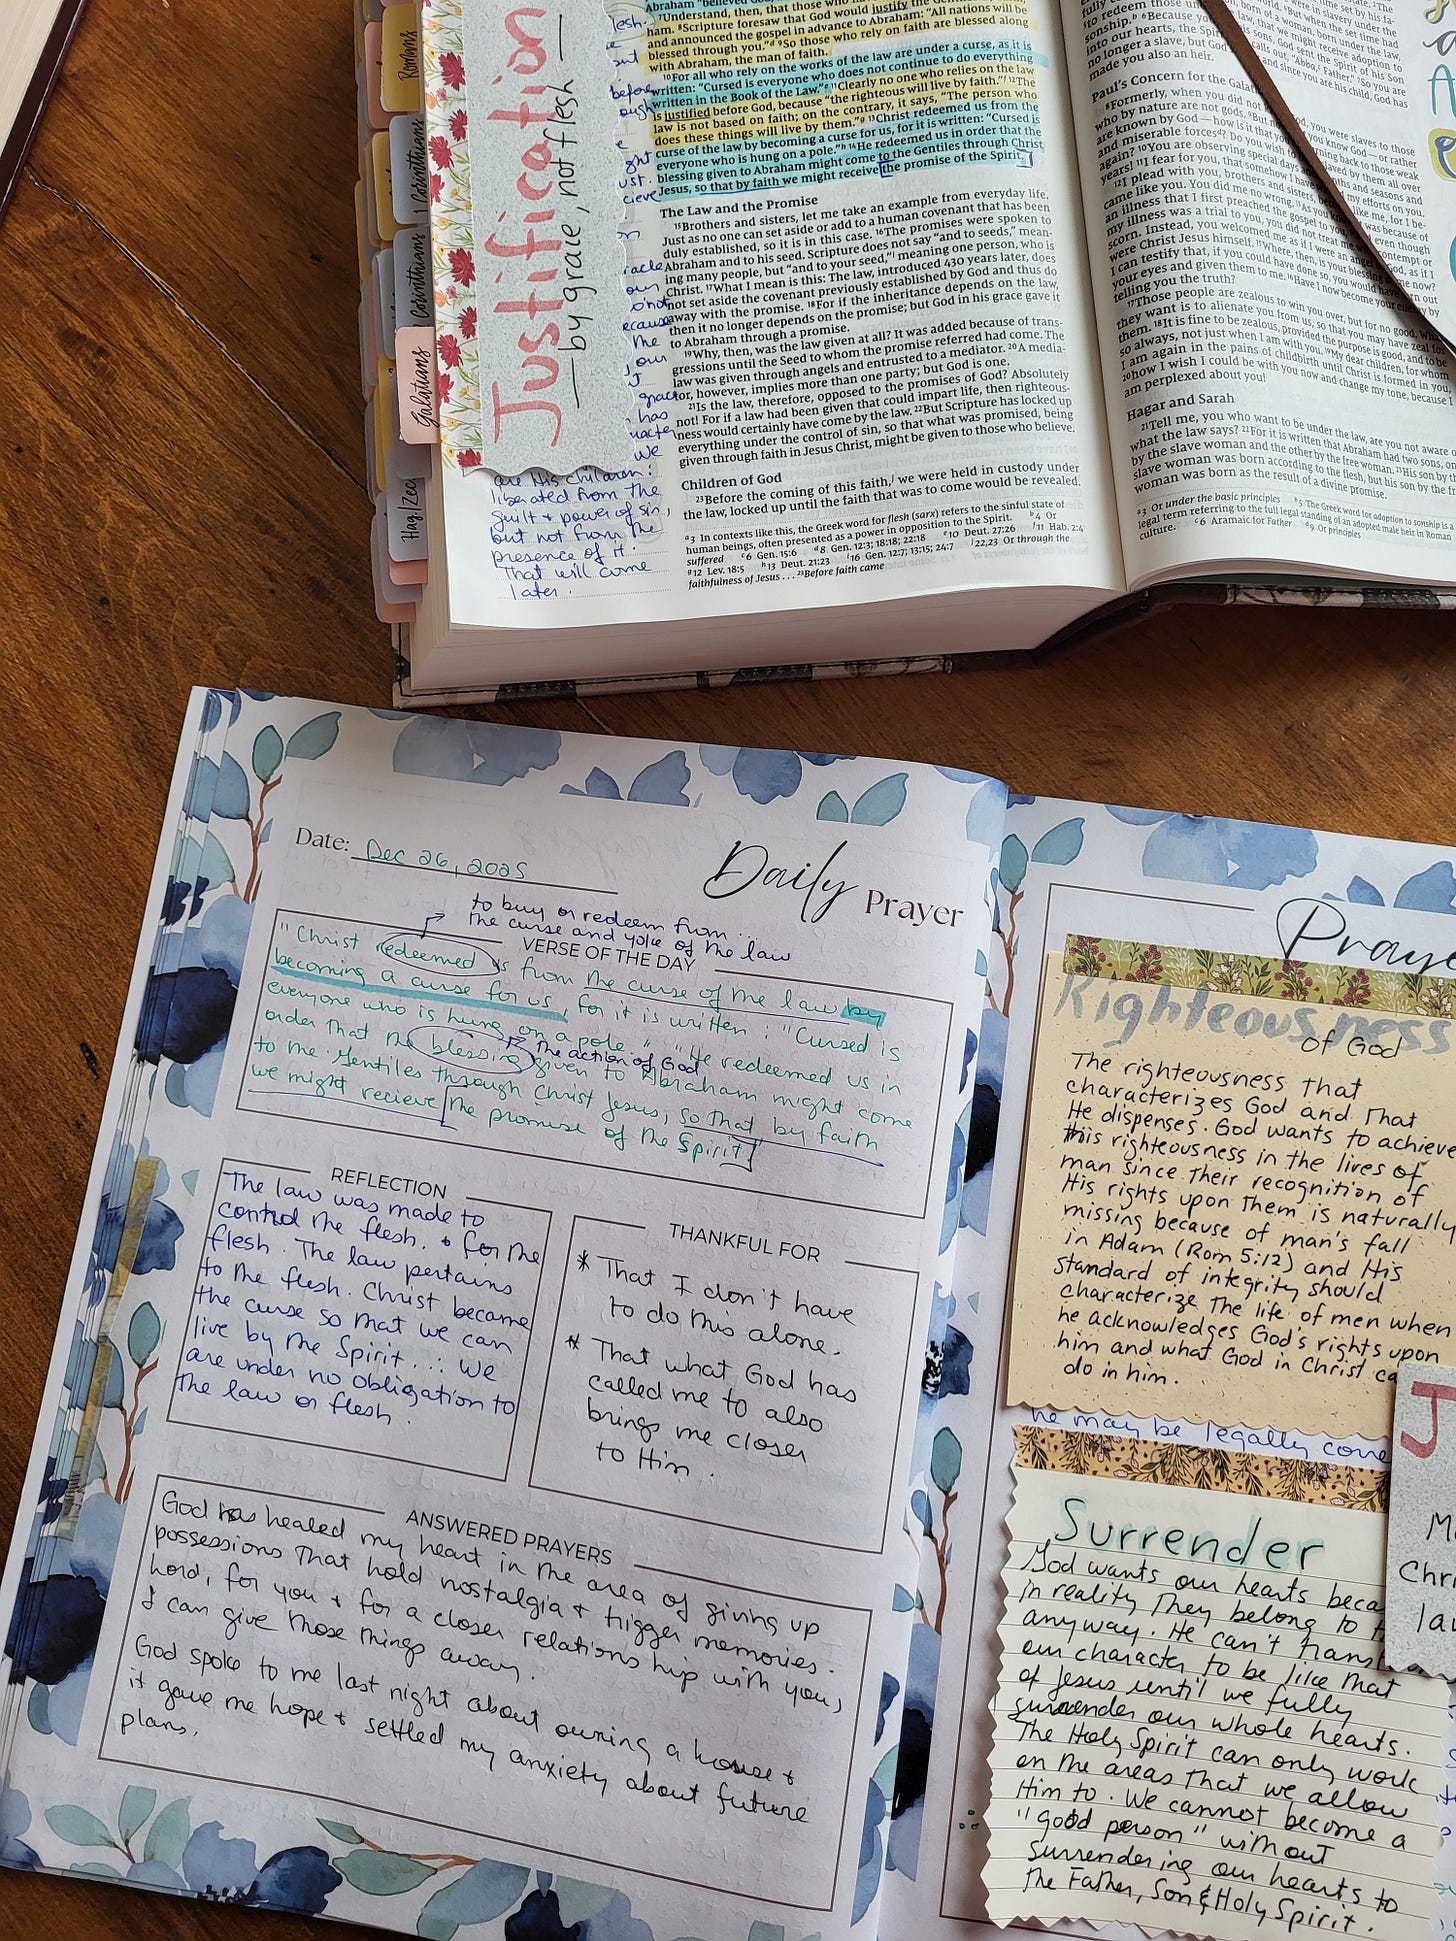 Romans
1 Corinthians
Corinthians
Galatians
Hag./Zec
Justification
— by grace, not flesh —
are His children:
liberated from the
guilt & power of sin,
but not from the
presence of it.
That will come
later.
Abraham "believed
7Understand, then, that those who
8Scripture foresaw that God would justify the Gentiles
and announced the gospel in advance to Abraham: "All nations will be
blessed through you."d 9So those who rely on faith are blessed along
with Abraham, the man of faith.
10For all who rely on the works of the law are under a curse, as it is
written: "Cursed is everyone who does not continue to do everything
written in the Book of the Law."e 11Clearly no one who relies on the law
is justified before God, because "the righteous will live by faith."f 12The
law is not based on faith; on the contrary, it says, "The person who
does these things will live by them."g 13Christ redeemed us from the
curse of the law by becoming a curse for us, for it is written: "Cursed is
everyone who is hung on a pole."h 14He redeemed us in order that the
blessing given to Abraham might come to the Gentiles through Christ
Jesus, so that by faith we might receive the promise of the Spirit.
The Law and the Promise
15Brothers and sisters, let me take an example from everyday life.
Just as no one can set aside or add to a human covenant that has been
duly established, so it is in this case. 16The promises were spoken to
Abraham and to his seed. Scripture does not say "and to seeds," mean-
ing many people, but "and to your seed,"i meaning one person, who is
Christ. 17What I mean is this: The law, introduced 430 years later, does
not set aside the covenant previously established by God and thus do
away with the promise. 18For if the inheritance depends on the law,
then it no longer depends on the promise; but God in his grace gave it
to Abraham through a promise.
19Why, then, was the law given at all? It was added because of trans-
gressions until the Seed to whom the promise referred had come. The
law was given through angels and entrusted to a mediator. 20A media-
tor, however, implies more than one party; but God is one.
21Is the law, therefore, opposed to the promises of God? Absolutely
not! For if a law had been given that could impart life, then righteous-
ness would certainly have come by the law. 22But Scripture has locked up
everything under the control of sin, so that what was promised, being
given through faith in Jesus Christ, might be given to those who believe.
Children of God
23Before the coming of this faith,j we were held in custody under
the law, locked up until the faith that was to come would be revealed.
a3 In contexts like this, the Greek word for flesh (sarx) refers to the sinful state of
human beings, often presented as a power in opposition to the Spirit. b4 Or
suffered c6 Gen. 15:6 d8 Gen. 12:3; 18:18; 22:18 e10 Deut. 27:26 f11 Hab. 2:4
g12 Lev. 18:5 h13 Deut. 21:23 i16 Gen. 12:7; 13:15; 24:7 j22,23 Or through the
faithfulness of Jesus . . . 23Before faith came
made you also an heir.
Paul's Concern for the Galatians
8Formerly, when you did not know God, you were slaves to those
who by nature are not gods. But now that you know God — or rather
are known by God — how is it that you are turning back to those weak
and miserable forces? Do you wish to be enslaved by them all over
again? 10You are observing special days and months and seasons and
years! 11I fear for you, that somehow I have wasted my efforts on you.
12I plead with you, brothers and sisters, become like me, for I be-
came like you. You did me no wrong. 13As you know, it was because of
an illness that I first preached the gospel to you, 14and even though
my illness was a trial to you, you did not treat me with contempt or
scorn. Instead, you welcomed me as if I were an angel of God, as if I
were Christ Jesus himself. 15Where, then, is your blessing of me now?
I can testify that, if you could have done so, you would have torn out
your eyes and given them to me. 16Have I now become your enemy by
telling you the truth?
17Those people are zealous to win you over, but for no good. What
they want is to alienate you from us, so that you may have zeal for
them. 18It is fine to be zealous, provided the purpose is good, and to be
so always, not just when I am with you. 19My dear children, for whom
I am again in the pains of childbirth until Christ is formed in you,
20how I wish I could be with you now and change my tone, because I
am perplexed about you!
Hagar and Sarah
21Tell me, you who want to be under the law, are you not aware of
what the law says? 22For it is written that Abraham had two sons, one
by the slave woman and the other by the free woman. 23His son by the
slave woman was born according to the flesh, but his son by the free
woman was born as the result of a divine promise.
a3 Or under the basic principles b5 The Greek word for adoption to sonship is a
legal term referring to the full legal standing of an adopted male heir in Roman
culture. c6 Aramaic for Father d9 Or principles
Date: Dec 26, 2025
Daily Prayer
to buy or redeem from ...
the curse and yoke of the law
VERSE OF THE DAY
"Christ redeemed us from the curse of the law by
becoming a curse for us, for it is written: "Cursed is
everyone who is hung on a pole." "He redeemed us in
the action of God
order that the blessing given to Abraham might come
to the Gentiles through Christ Jesus, so that by faith
we might recieve the promise of the Spirit
REFLECTION
The law was made to
control the flesh. & for the
flesh. The law pertains
to the flesh. Christ became
the curse so that we can
live by the Spirit. ∴ We
are under no obligation to
the law or flesh.
THANKFUL FOR
* That I don't have
to do this alone.
* That what God has
called me to also
brings me closer
to Him.
ANSWERED PRAYERS
God has healed my heart in the area of giving up
possessions that hold nostalgia & trigger memories.
Lord, for you & for a closer relationship with you,
I can give those things away.
God spoke to me last night about owning a house &
it gave me hope & settled my anxiety about future
plans.
Praye
Righteousness
of God
The righteousness that
characterizes God and that
He dispenses. God wants to achieve
this righteousness in the lives of
man since their recognition of
His rights upon them is naturally
missing because of man's fall
in Adam (Rom 5:12) and His
standard of integrity should
characterize the life of men when
he acknowledges God's rights upon
him and what God in Christ ca
do in him.
he may be legally come
Surrender
God wants our hearts beca
in reality they belong to
anyway. He can't trans
our character to be like that
of Jesus until we fully
surrender our whole hearts.
The Holy Spirit can only work
on the areas that we allow
Him to. We cannot become a
"good person" without
surrendering our hearts to
the Father, Son & Holy Spirit.
J
M
Chr
la